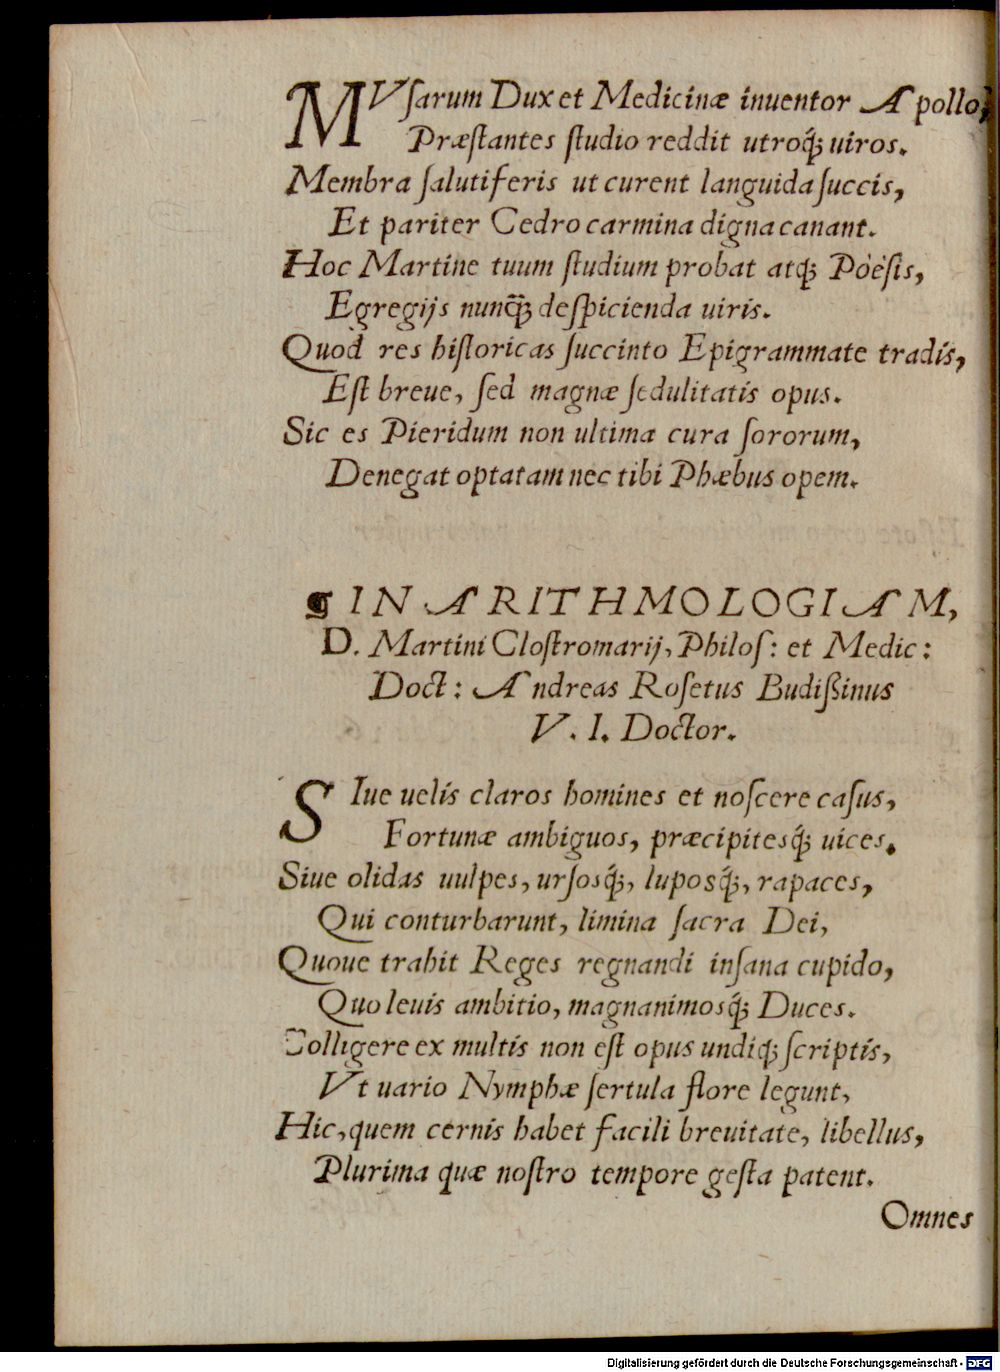 MVſarum Dux et Medicinæ inuentor Apollo,
Præſtantes ſtudio reddit utroq́; uiros.
Membra ſalutiferis ut curent languida ſuccis,
Et pariter Cedro carmina digna canant.
Hoc Martine tuum ſtudium probat atq; Poëſis,
Egregijs nunq̃; deſpicienda uiris.
Quod res hiſtoricas ſuccinto Epigrammate tradis,
Eſt breue, ſed magnæ ſedulitatis opus.
Sic es Pieridum non ultima cura ſororum,
Denegat optatam nec tibi Phæbus opem.
¶ IN ARITHMOLOGIAM,
D. Martini Cloſtromarij, Philoſ: et Medic:
Doct: Andreas Roſetus Budiſsinus
V. I. Doctor.
SIue uelis claros homines et noſcere caſus,
Fortunæ ambiguos, præcipitesq́; uices.
Siue olidas uulpes, urſosq́;, luposq́;, rapaces,
Qui conturbarunt, limina ſacra Dei,
Quoue trahit Reges regnandi inſana cupido,
Quo leuis ambitio, magnanimosq́; Duces.
Colligere ex multis non eſt opus undiq; ſcriptis,
Vt uario Nymphæ ſertula flore legunt,
Hic, quem cernis habet facili breuitate, libellus,
Plurima quæ noſtro tempore geſta patent.
Omnes
Digitalisierung gefördert durch die Deutsche Forschungsgemeinschaft - DFG